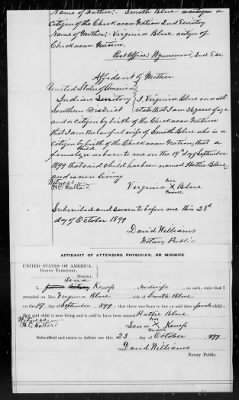 Name of Father: Smith Blue
citizen of the Chickasaw Nation Ind Territory
Name of Mother: Virginia Blue citizen of
Chickasaw Nation.
Post Office, Wynnewood, Ind Ter
Affidavit of Mother
United States of America
Indian Territory } I, Virginia Blue on oath
Southern District state that I am 26 years of age
and a citizen by birth of the Chickasaw Nation
that I am the lawful wife of Smith Blue who is a
citizen by birth of the Chickasaw Nation, that a
female child was born to me on the 19th day of September
1899 that said child has been named Hattie Blue
and is now living
Witness her
Virginia X Blue
mark
Subscribed and sworn to before me this 23d
day of October 1899
David Williams
Notary Public
AFFIDAVIT OF ATTENDING PHYSICIAN, OR MIDWIFE.
UNITED STATES OF AMERICA,
INDIAN TERRITORY,
District.
Kemp, midwife, on oath, state that I
attended on Mrs. Virginia Blue, wife of Smith Blue
on the 19 day of September, 1899; that there was born to her on said date female child;
that said child is now living and is said to have been named Hattie Blue
Witness her
Lena X Kemp
mark
Subscribed and sworn to before me this 23 day of October 1899
David Williams
Notary Public.